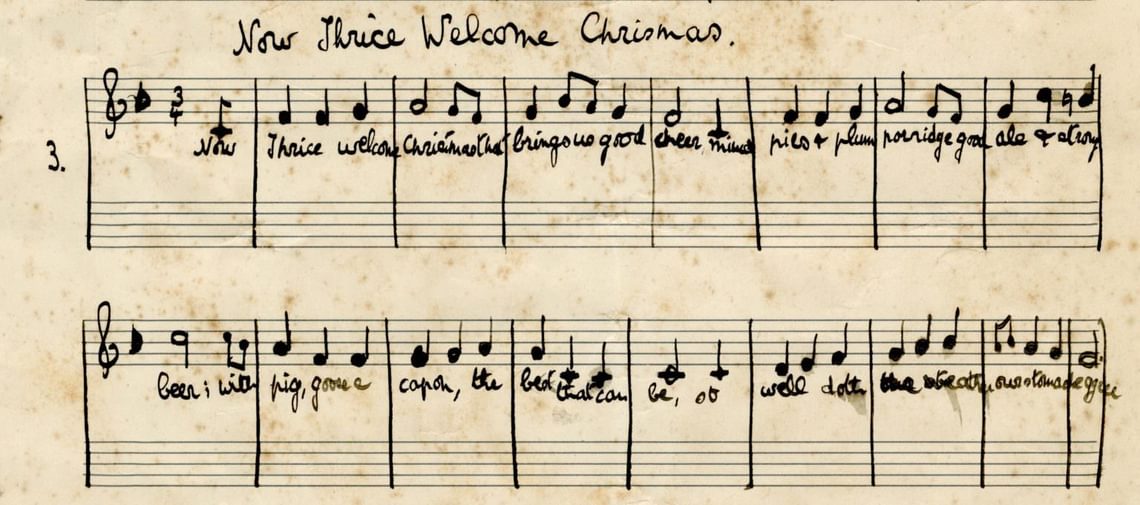 Now Thrice Welcome Chrismas.
3.
3
4
Now Thrice welcome Christmas that brings us good cheer mincd pies & plum porridge good ale & strong
beer; with pig, goose capon, the best that can be, so well doth the weather our stomac agree